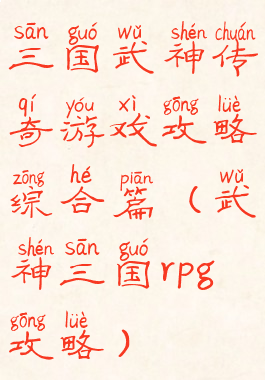 sān guó wǔ shén chuán
三国武神传
qí yóu xì gōng lüè
奇游戏攻略
zōng hé piān wǔ
综合篇(武
shén sān guó
神三国rpg
gōng lüè
攻略)